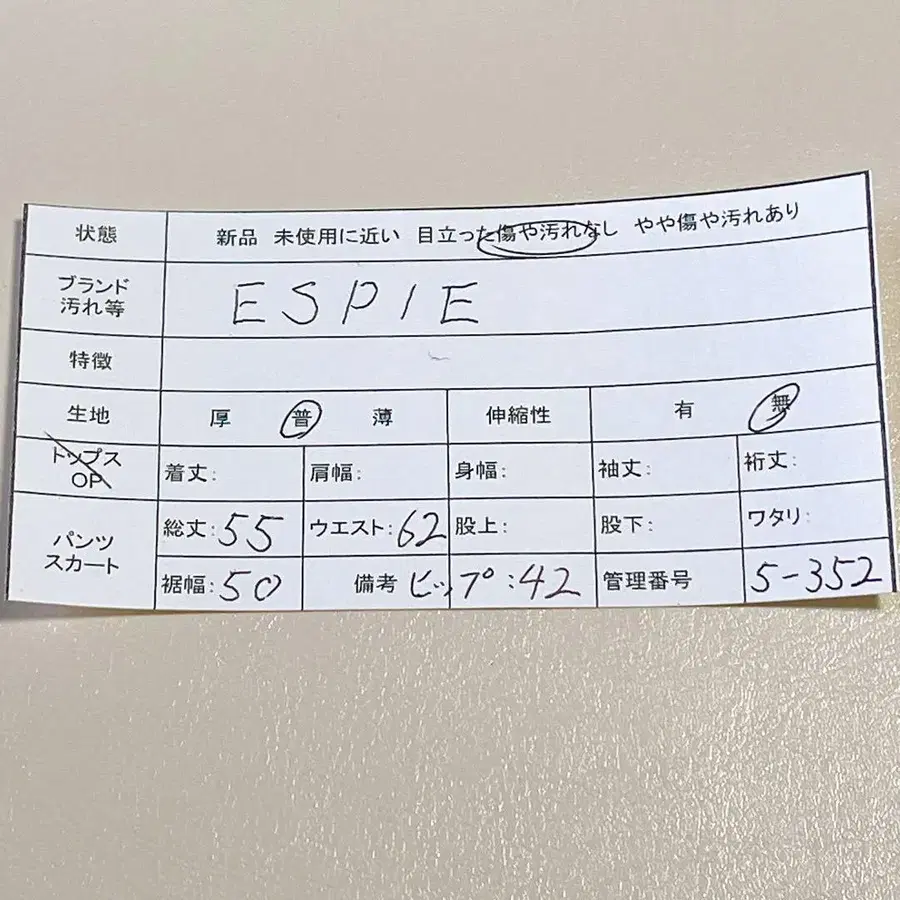 状態 新品 未使用に近い 目立った傷や汚れなし やや傷や汚れあり
ブランド
汚れ等
ESPIE
特徴
生地 厚 普 薄 伸縮性 有 無
トップス
OP
着丈: 肩幅: 身幅: 袖丈: 裄丈:
パンツ
スカート
総丈:55 ウエスト:62 股上: 股下: ワタリ:
裾幅:50 備考 ヒップ:42 管理番号 5-352